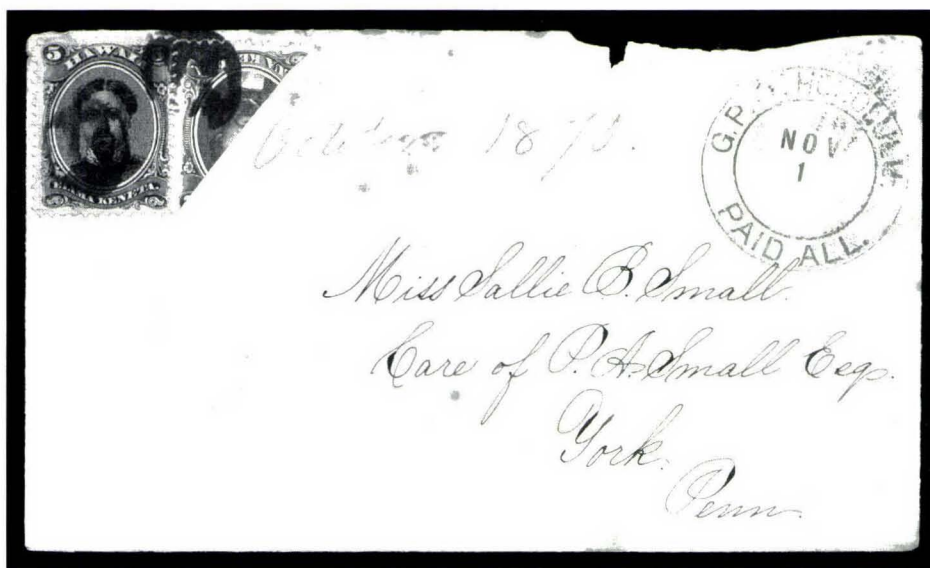 5 HAWAII 5
KAMEHAMEHA
October 1875.
G.P.O. HONOLULU.
NOV
1
PAID ALL.
Miss Sallie B. Small.
Care of P. A. Small Esqr.
York.
Penn.